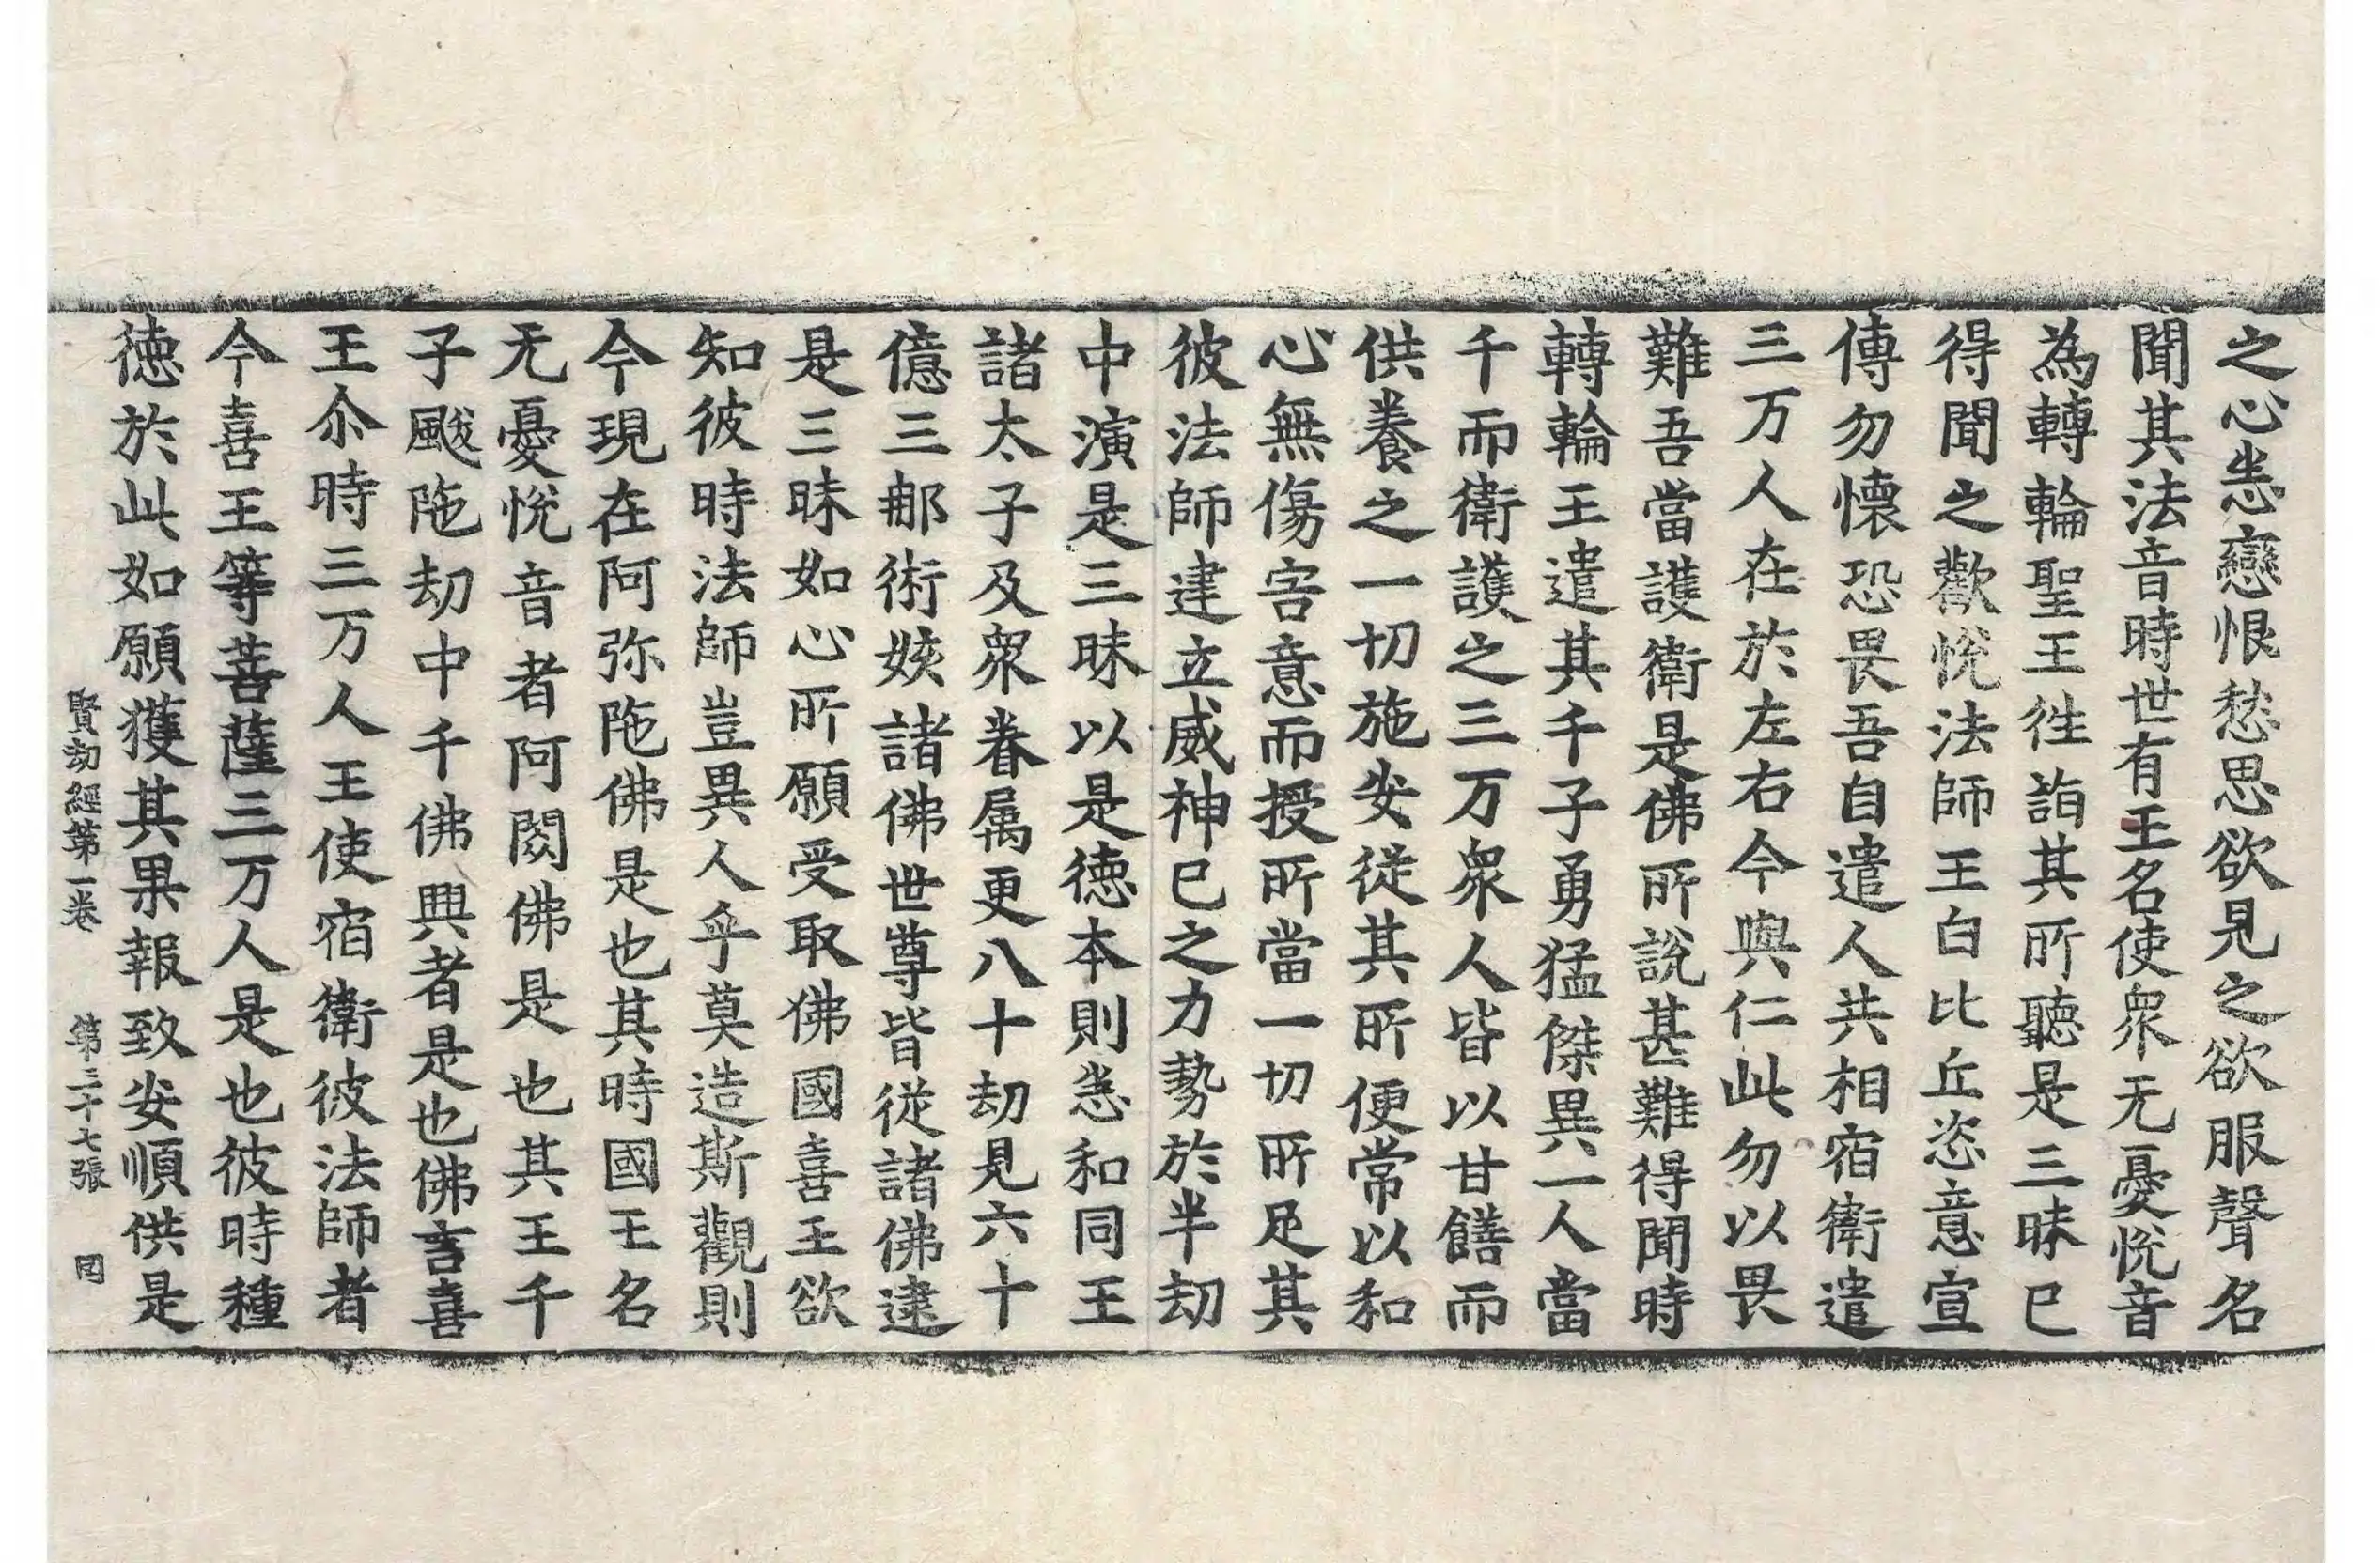 之心恚戀恨愁思欲見之欲服聲名
聞其法音時世有王名使衆无憂悅音
為轉輪聖王徃詣其所聽是三昧已
得聞之歡悅法師王白比丘恣意宣
傳勿懷恐畏吾自遣人共相宿衛遣
三万人在於左右今與仁此勿以畏
難吾當護衛是佛所說甚難得聞時
轉輪王遣其千子勇猛傑異一人當
千而衛護之三万衆人皆以甘饍而
供養之一切施安從其所便常以和
心無傷害意而授所當一切所足其
彼法師建立威神已之力勢於半劫
中演是三昧以是德本則恚和同王
諸太子及衆眷属更八十劫見六十
億三那術姟諸佛世尊皆從諸佛逮
是三昧如心所願受取佛國喜王欲
知彼時法師豈異人乎莫造斯觀則
今現在阿弥陁佛是也其時國王名
无憂悅音者阿閦佛是也其王千
子颰陁劫中千佛興者是也佛言喜
王尒時三万人王使宿衛彼法師者
今喜王等菩薩三万人是也彼時種
德於此如願獲其果報致安順供是
賢劫經第一卷 第二十七張 罔